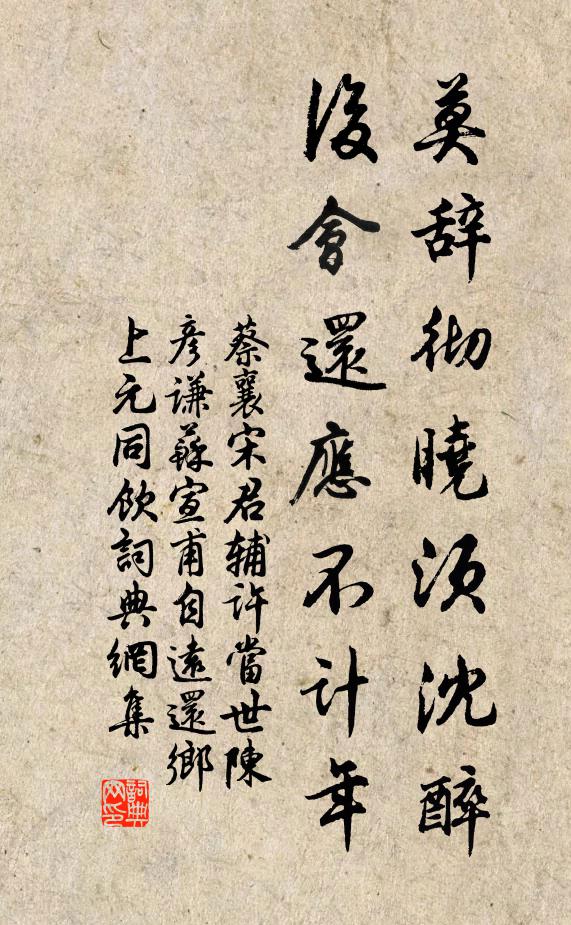 莫辭彻曉須沈醉
後會還應不計年
蔡襄宋君辅許當世陳
彦谦蘇宣甫自遠還鄉
上元同飲詞典網集
詞典
网印